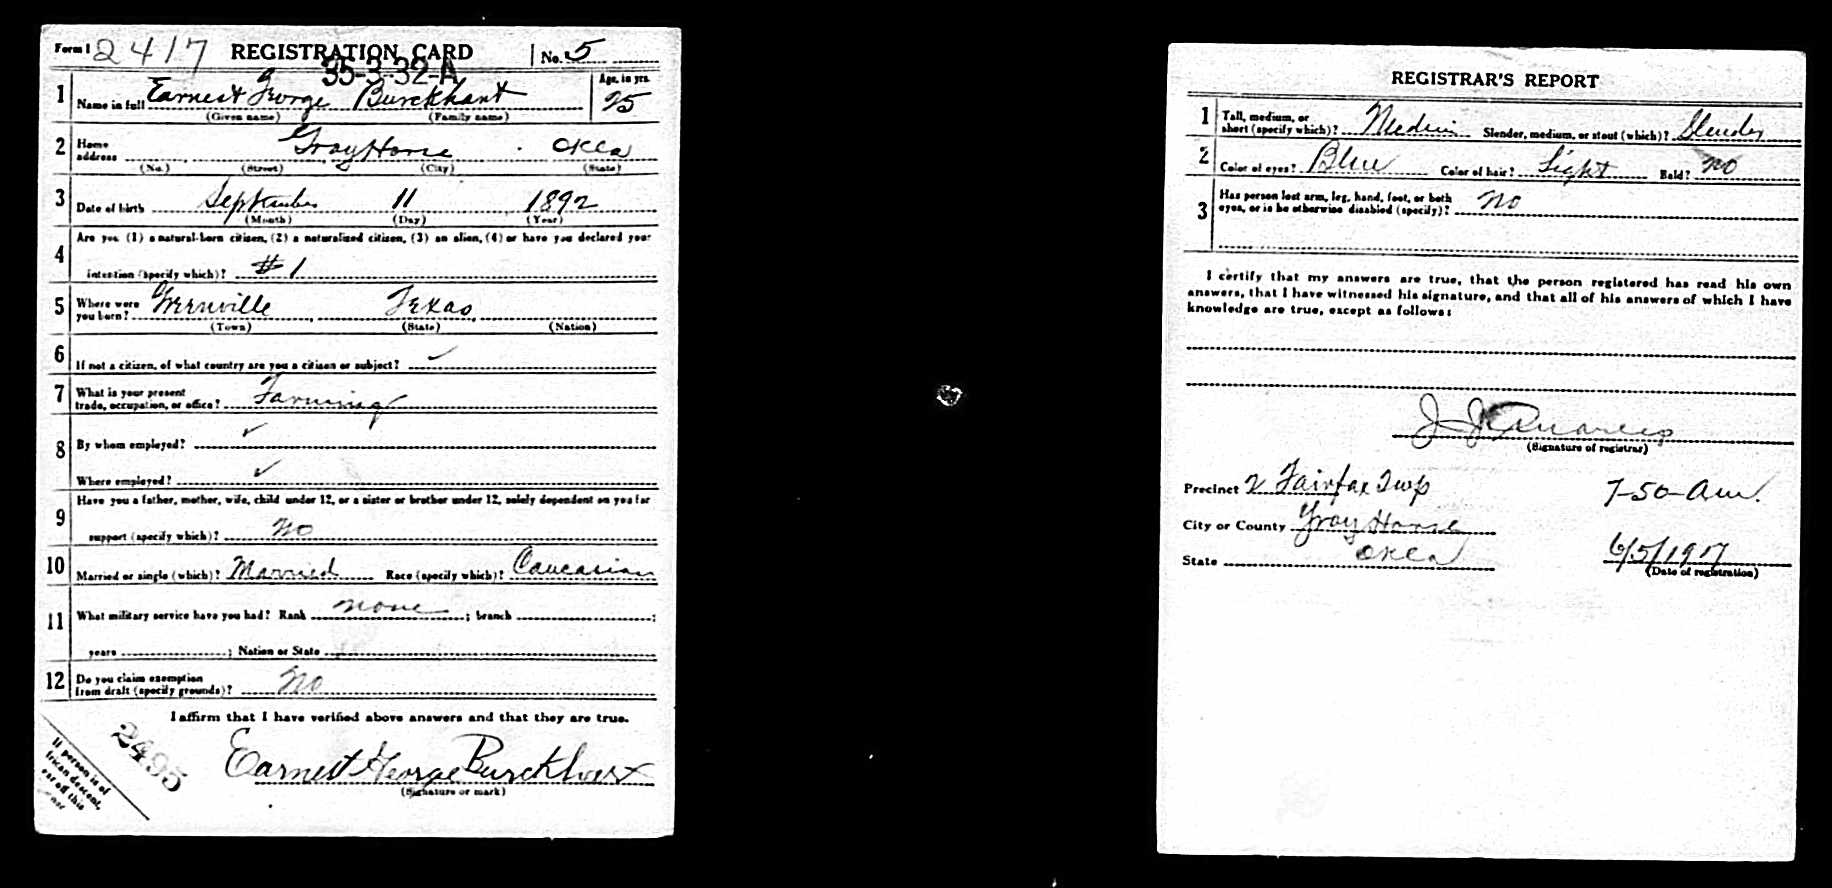 Form 1 2417 REGISTRATION CARD No. 5
35-3-32-A
1 Name in full Earnest George Burckhart Age, in yrs. 25
(Given name) (Family name)
2 Home address GrayHorse Okla
(No.) (Street) (City) (State)
3 Date of birth September 11 1892
(Month) (Day) (Year)
4 Are you (1) a natural-born citizen, (2) a naturalized citizen, (3) an alien, (4) or have you declared your
intention (specify which)? #1
5 Where were you born? Greenville Texas
(Town) (State) (Nation)
6 If not a citizen, of what country are you a citizen or subject? ✓
7 What is your present
trade, occupation, or office? Farming
8 By whom employed? ✓
Where employed? ✓
9 Have you a father, mother, wife, child under 12, or a sister or brother under 12, solely dependent on you for
support (specify which)? No
10 Married or single (which)? Married Race (specify which)? Caucasian
11 What military service have you had? Rank none ; branch ;
years ; Nation or State
12 Do you claim exemption
from draft (specify grounds)? No
I affirm that I have verified above answers and that they are true.
Earnest George Burckhart
(Signature or mark)
2495
If person is of
African descent,
tear off this
corner
REGISTRAR'S REPORT
1 Tall, medium, or
short (specify which)? Medium Slender, medium, or stout (which)? Slender
2 Color of eyes? Blue Color of hair? Light Bald? No
3 Has person lost arm, leg, hand, foot, or both
eyes, or is he otherwise disabled (specify)? No
I certify that my answers are true, that the person registered has read his own
answers, that I have witnessed his signature, and that all of his answers of which I have
knowledge are true, except as follows:
J. J.
(Signature of registrar)
Precinct 2 Fairfax Twp 7-50-am.
City or County GrayHorse
State Okla 6/5/1917
(Date of registration)